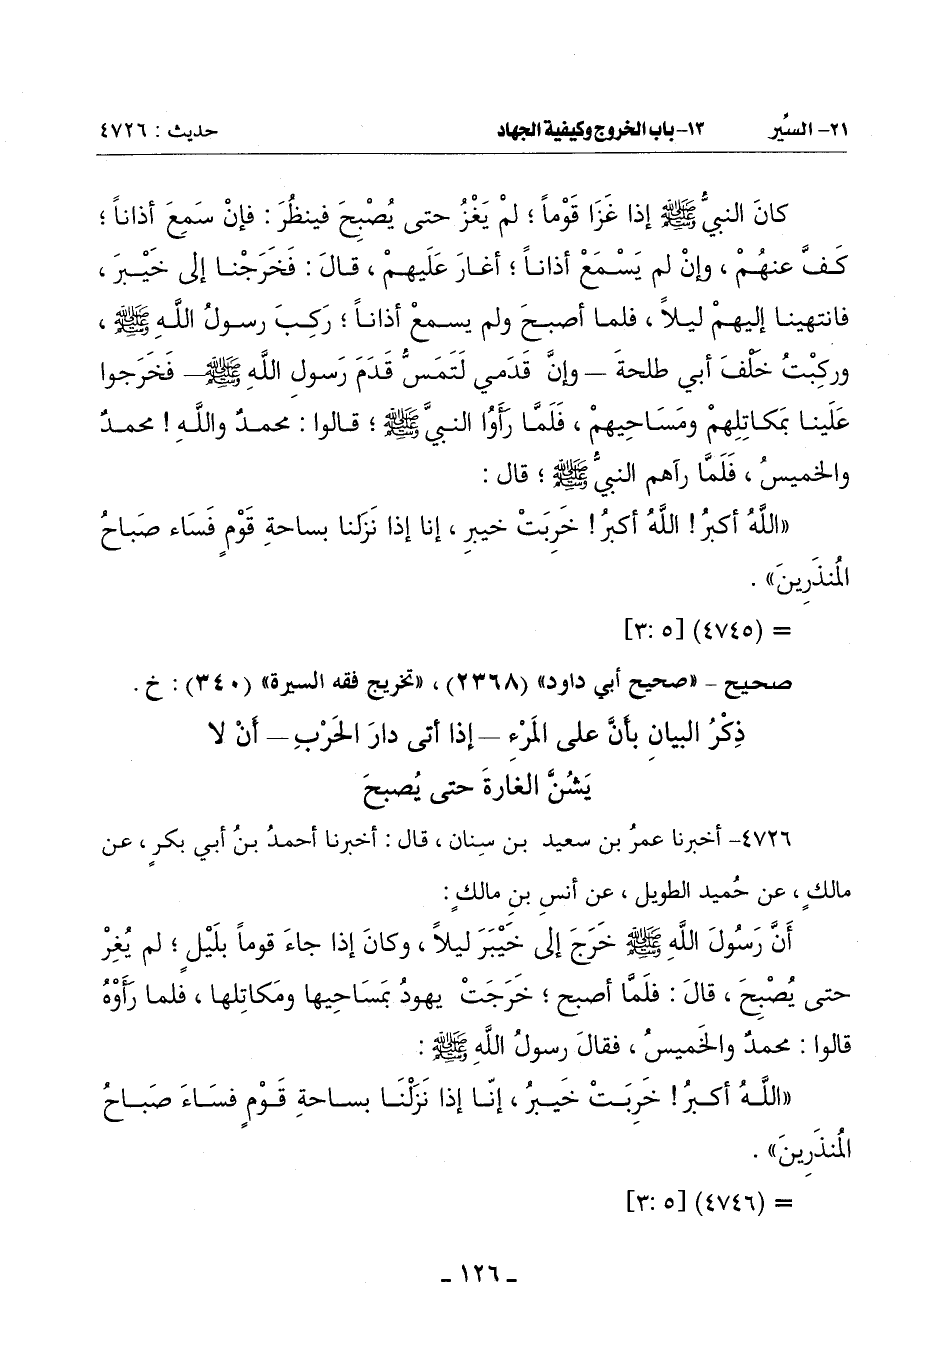 ٢١- السِّير ١٣-باب الخروج وكيفية الجهاد حديث : ٤٧٢٦
كانَ النبيُّ ﷺ إذا غَزَا قَوْماً ؛ لمْ يَغْزُ حتى يُصْبِحَ فينظُرَ : فإنْ سَمعَ أذاناً ؛
كَفَّ عنهُمْ ، وإنْ لم يَسْمَعْ أذاناً ؛ أغارَ عَلَيهِمْ ، قالَ : فَخَرَجْنا إلى خَيْبرَ ،
فانتهينا إليهِمْ ليلاً ، فلما أصبحَ ولم يسمعْ أذاناً ؛ رَكِبَ رسولُ اللهِ ﷺ ،
ورَكِبْتُ خَلْفَ أبي طلحةَ – وإنَّ قَدَمي لَتَمَسُّ قَدَمَ رَسولِ اللَّهِ ﷺ – فَخَرجوا
عَلَينا بمَكاتِلِهِمْ ومَسَاحِيهِمْ ، فَلَمَّا رَأَوُا النبيَّ ﷺ ؛ قالوا : محمدٌ واللَّهِ ! محمدٌ
والخميسُ ، فَلَمَّا رآهم النبيُّ ﷺ ؛ قال :
«اللَّهُ أكبرُ ! اللَّهُ أكبرُ ! خَرِبَتْ خيبرِ ، إنا إذا نَزَلنا بساحةِ قَوْمٍ فَسَاء صَبَاحُ
المُنذَرِينَ» .
= (٤٧٤٥) [٥ :٣]
صحيح – «صحيح أبي داود» (٢٣٦٨) ، «تخريج فقه السيرة» (٣٤٠) : خ .
ذِكْرُ البيانِ بأنَّ على المَرْءِ – إذا أتى دارَ الحَرْبِ – أنْ لا
يَشُنَّ الغارةَ حتى يُصبحَ
٤٧٢٦- أخبرنا عمرُ بن سعيد بن سِنان ، قال : أخبرنا أحمدُ بنُ أبي بكرٍ ، عن
مالكٍ ، عن حُميد الطويل ، عن أنسِ بنِ مالكٍ :
أَنَّ رَسُولَ اللَّهِ ﷺ خَرَجَ إلى خَيْبَرَ ليلاً ، وكانَ إذا جاءَ قوماً بلَيْلٍ ؛ لم يُغِرْ
حتى يُصْبِحَ ، قالَ : فلَمَّا أصبح ؛ خرَجَتْ يهودُ بمَساحِيها ومَكاتلِها ، فلما رَأَوْهُ
قالوا : محمدٌ والخَميسُ ، فقالَ رسولُ اللَّهِ ﷺ :
«اللَّهُ أكبرُ ! خَرِبَتْ خَيبرُ ، إنّا إذا نَزَلْنَا بساحةِ قَوْمٍ فسَاءَ صَبَاحُ
المُنذَرِينَ» .
= (٤٧٤٦) [٥ :٣]
- ١٢٦ -